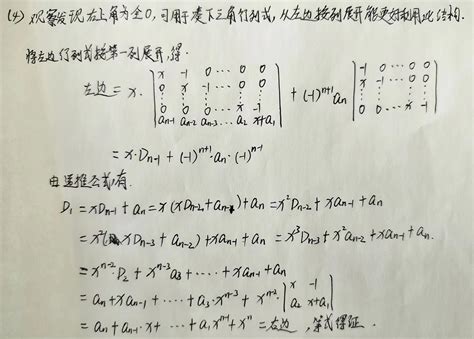 (4) 观察发现右上角为全0,可用于凑下三角行列式,从左边按列展开能更好利用此结构.
将左边行列式按第一列展开,得:
左边 = x· | x -1 0 0 ⋯ 0 0 ; 0 x -1 0 ⋯ 0 0 ; ⋮ ⋮ ⋮ ⋮ ⋮ ⋮ ; 0 0 0 0 ⋯ x -1 ; an-1 an-2 an-3 ⋯ a2 x+a1 | + (-1)^{n+1} an | -1 0 ⋯ 0 0 ; x -1 ⋯ 0 0 ; ⋮ ⋮ ⋮ ⋮ ; 0 0 ⋯ x -1 |
= x·Dn-1 + (-1)^{n+1}·an·(-1)^{n-1}
由递推公式,有.
D1 = xDn-1 + an = x(xDn-2 + an-1) + an = x²Dn-2 + xan-1 + an
= x²(xDn-3 + an-2) + xan-1 + an = x³Dn-3 + x²an-2 + xan-1 + an.
= x^{n-2}·D2 + x^{n-3}a3 + ⋯ + xan-1 + an
= an + xan-1 + ⋯ + a3·x^{n-3} + x^{n-2}· | x -1 ; a2 x+a1 |
= an + an-1·x + ⋯ + a1x^{n-1} + x^n = 右边,等式得证.